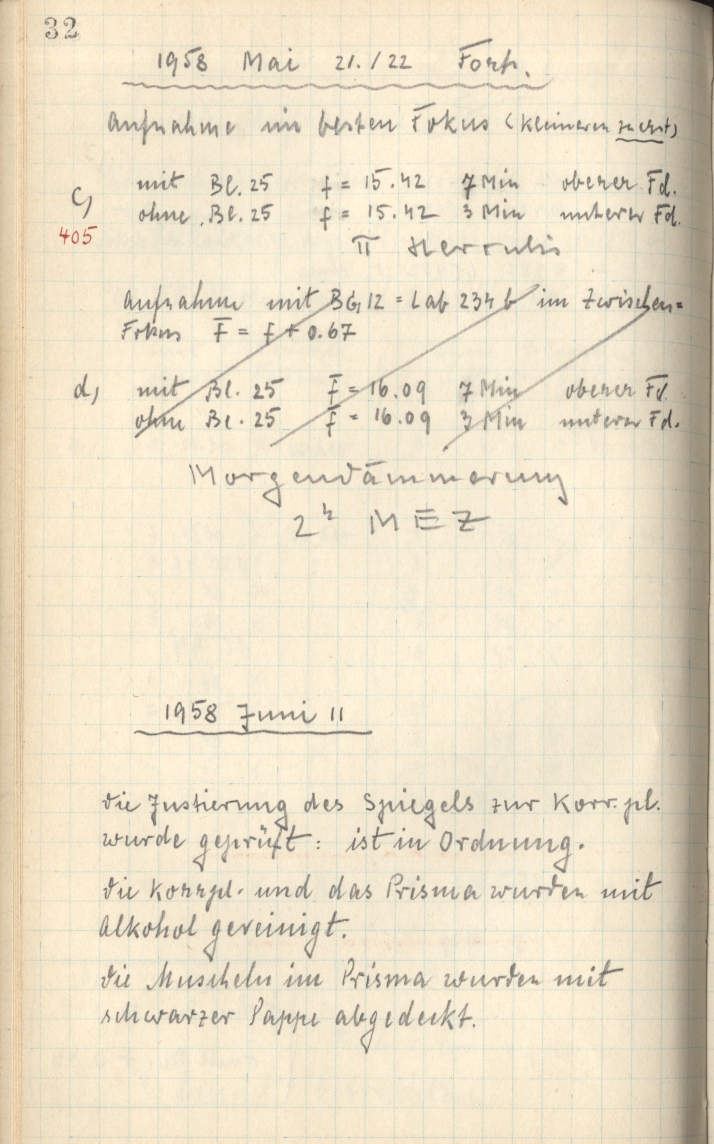 32
1958 Mai 21./22 Forts.
Aufnahme im besten Fokus (kleineren zuerst)
c) mit Bl. 25 f = 15.42 7 Min oberer Fd.
ohne Bl. 25 f = 15.42 3 Min unterer Fd.
405
π Herculis
Aufnahme mit BG 12 = Lab 234 b im Zwischen=
Fokus F = f + 0.67
d) mit Bl. 25 F = 16.09 7 Min oberer Fd.
ohne Bl. 25 F = 16.09 3 Min unterer Fd.
Morgendämmerung
2h MEZ
1958 Juni 11
Die Justierung des Spiegels zur Korr.pl.
wurde geprüft: ist in Ordnung.
Die Korrpl. und das Prisma wurden mit
Alkohol gereinigt.
Die Muscheln im Prisma wurden mit
schwarzer Pappe abgedeckt.